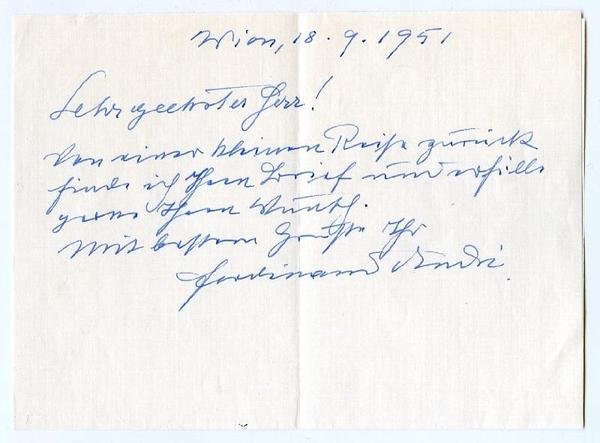 Wien, 18. 9. 1951
Sehr geehrter Herr!
Von einer kleinen Reise zurück
finde ich Ihren Brief und erfülle
gerne Ihren Wunsch.
Mit besten Grüßen Ihr
Ferdinand Andri